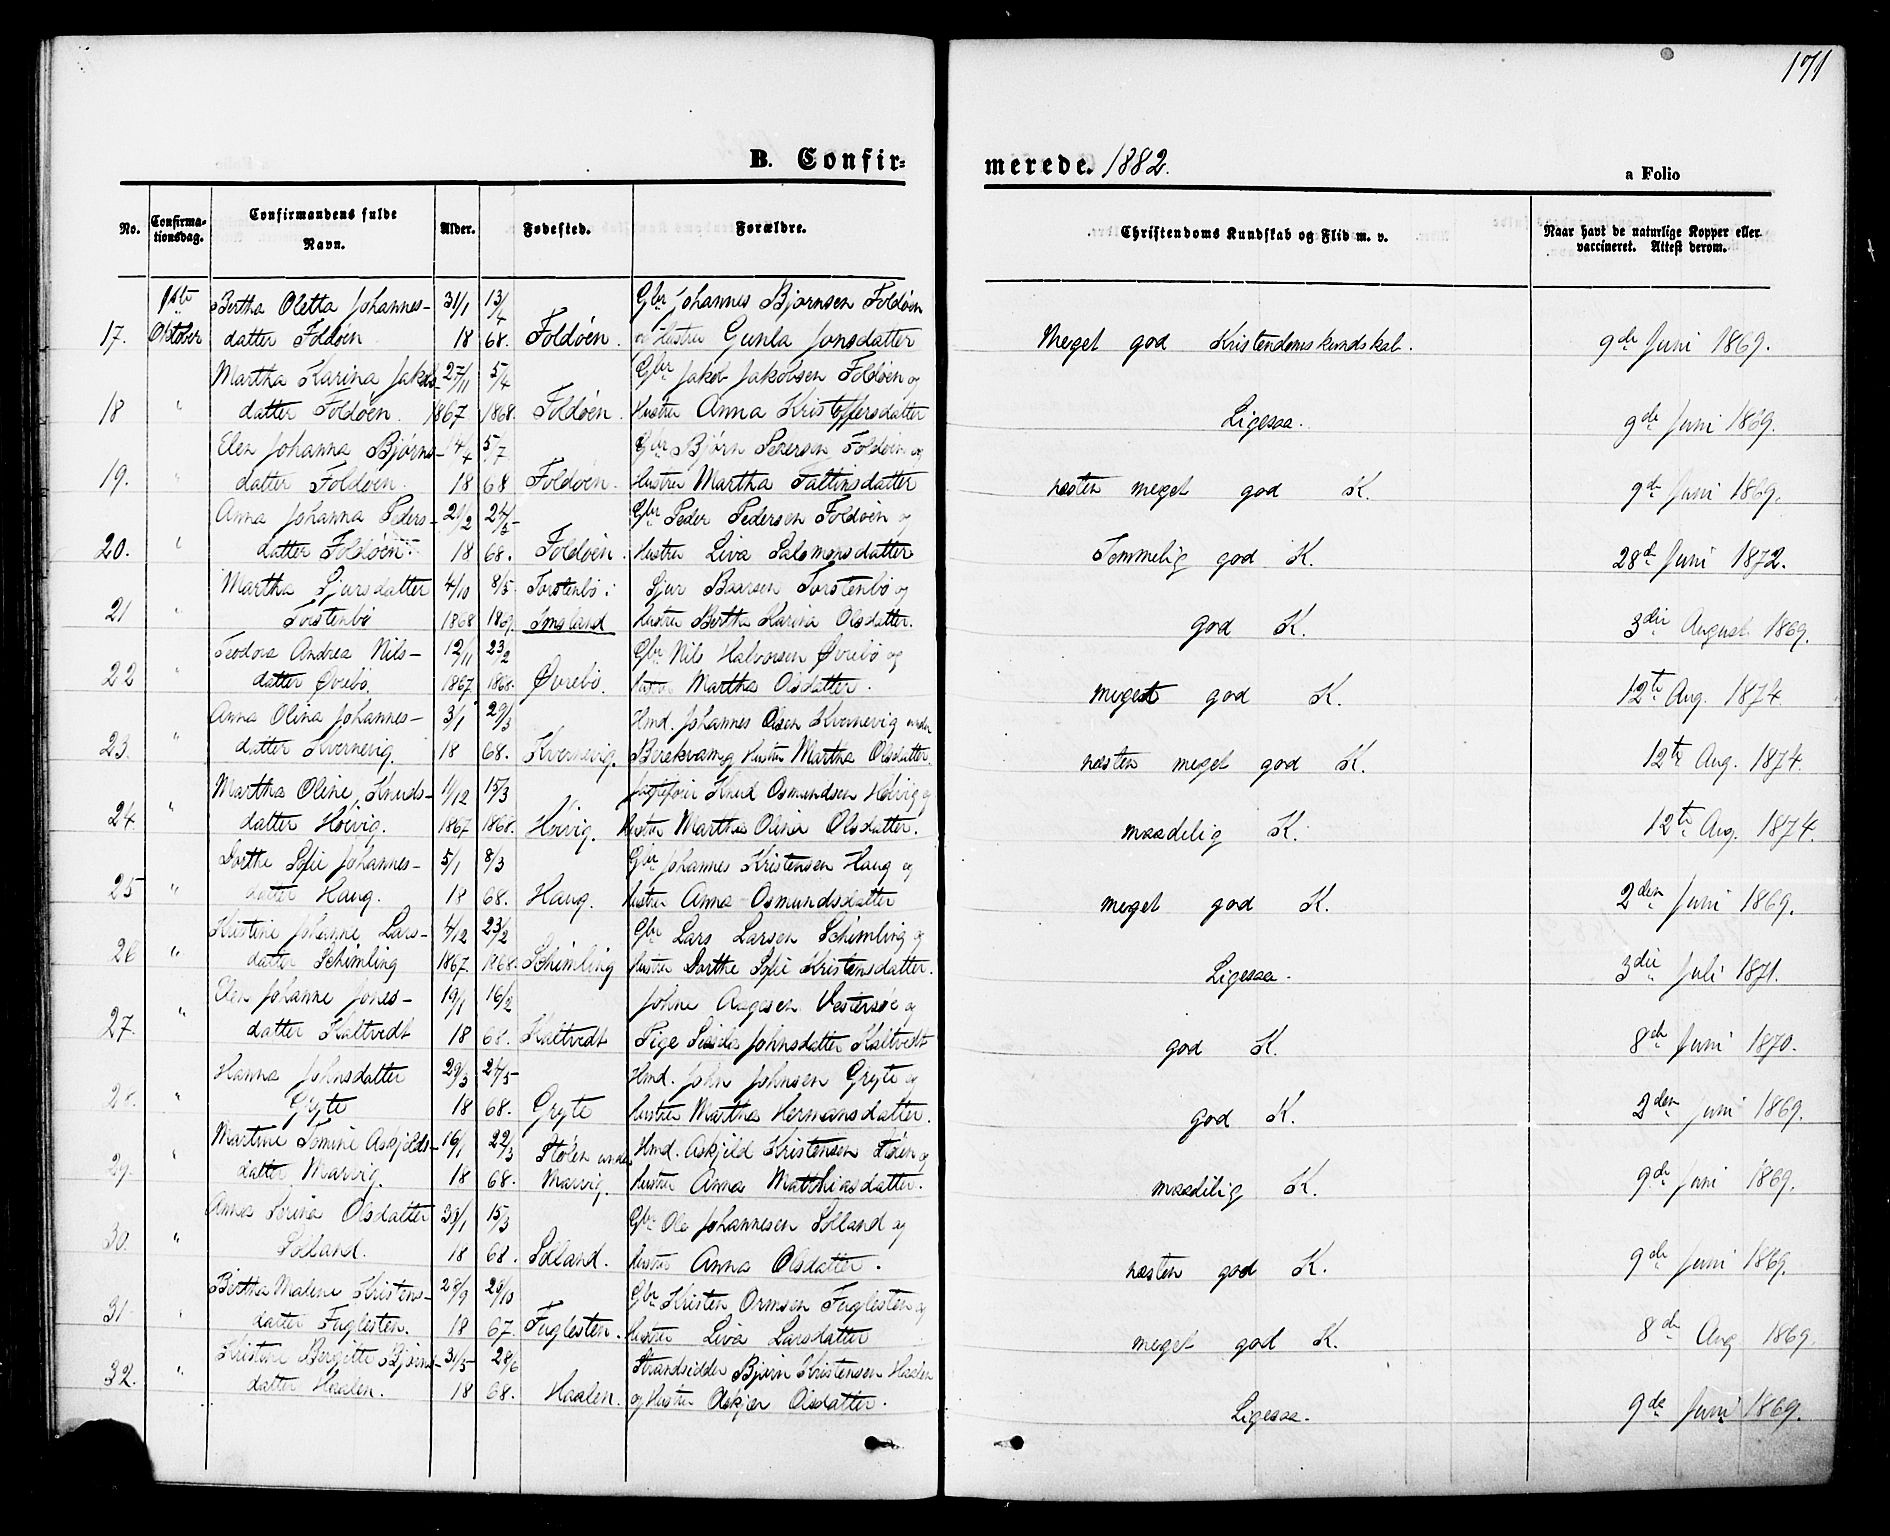 171
B. Confir-
merede. 1882.
a Folio
No. Confirma-tionsdag. Confirmandens fulde Navn. Alder. Fødested. Forældre. Christendoms Kundskab og Flid m. v. Naar havt de naturlige Kopper eller vaccineret. Attest derom.
1ste Bertha Oletta Johannes- 31/1 13/4 Gbr Johannes Bjørnsen Foldøen
17. Oktober datter Foldøen 18 68. Foldøen. og Hustru Gunla Jonsdatter Meget god Kristendomskundskab. 9de Juni 1869.
Martha Karina Jakobs- 27/11 5/4 Gbr Jakob Jakobsen Foldøen og
18 " datter Foldøen. 1867 1868. Foldøen. Hustru Anna Kristoffersdatter Ligesaa. 9de Juni 1869.
Elen Johanna Bjørns- 14/4 5/7 Gbr Bjørn Pedersen Foldøen og
19. " datter Foldøen. 18 68 Foldøen. Hustru Martha Faltinsdatter næsten meget god K. 9de Juni 1869.
Anna Johanna Peders- 21/2 24/5 Gbr Peder Pedersen Foldøen og
20. " datter Foldøen. 18 68. Foldøen. Hustru Liva Salomonsdatter Temmelig god K. 28de Juni 1872.
Martha Sjursdatter 4/10 8/5 Torstenbø i Sjur Baarsen Torstenbø og
21 " Torstenbø 1868 1869. Imsland Hustru Bertha Karina Olsdatter. god K. 3die August 1869.
Teodora Andrea Nils- 12/11 23/2 Gbr Nils Halvorsen Øvrebø og
22 " datter Øvrebø. 1867 1868. Øvrebø. Hustru Martha Olsdatter. meget god K. 12te Aug. 1874.
Anna Olina Johannes- 3/1 29/3 Hmd. Johannes Olsen Kvernevig under
23. " datter Kvernevig. 18 68. Kvernevig. Berekvam og Hustru Martha Olsdatter. næsten meget god K. 12te Aug. 1874.
Martha Oline Knuds- 1/12 15/3 Knud Osmundsen Høivig og
24. " datter Høivig. 1867 1868. Høivig. Hustru Martha Olina Olsdatter. maadelig K. 12te Aug. 1874.
Dorthe Sofie Johannes- 5/1 8/3 Gbr Johannes Kristensen Haug og
25 " datter Haug. 18 68. Haug. Hustru Anna Osmundsdatter meget god K. 2den Juni 1869.
Kistine Johanne Lars- 4/12 23/2 Gbr Lars Larsen Schimling og
26 " datter Schimling 1867. 1868. Schimling Hustru Dorthe Sofie Kristensdatter. Ligesaa. 3die Juli 1871.
Elen Johanne Jones- 19/1 16/2 Johne Aagesen Vestersøe og
27. " datter Kaltvedt 18 68. Kaltvedt Pige Johnsdatter Kaltvedt god K. 8de Juni 1870.
Hanna Johnsdatter 29/3 24/5 Hmd. John Johnsen Gryte og
28. " Gryte 18 68. Gryte Hustru Martha Hermansdatter. god K. 2den Juni 1869.
Martine Tomine Askjelds- 16/1 22/3 Stølen under Hmd. Askjeld Kristensen Stølen og
29. " datter Marvig. 18 68. Marvig. Hustru Anna Matthiasdatter. maadelig K. 9de Juni 1869.
Anna Serina Olsdatter 15/3 Gbr Ole Johannesen Solland og
30. " Solland. 18 68. Solland. Hustru Anna Olsdatter. næsten god K. 9de Juni 1869.
Bertha Malene Kristens- 28/9 20/10 Gbr Kristen Ormsen Fuglesten og
31 " datter Fuglesten. 18 67. Fuglesten. Hustru Liva Larsdatter meget god K. 8de Aug 1869.
Kristine Bergitte Bjørns- 31/5 28/6 Strandsidder Bjørn Kristensen Haalen
32. " datter Haalen. 18 68. Haalen. og Hustru Olsdatter. Ligesaa. 9de Juni 1869.